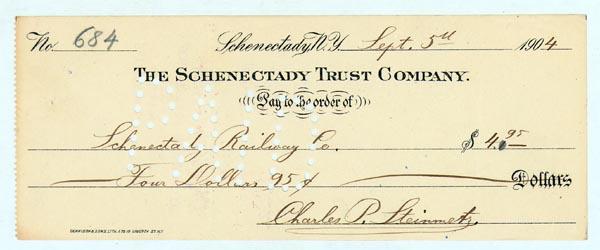 No. 684 Schenectady, N.Y. Sept. 5th 1904
THE SCHENECTADY TRUST COMPANY.
Pay to the order of
Schenectady Railway Co. $ 4.95
Four Dollars 95 ¢ Dollars
Charles P. Steinmetz